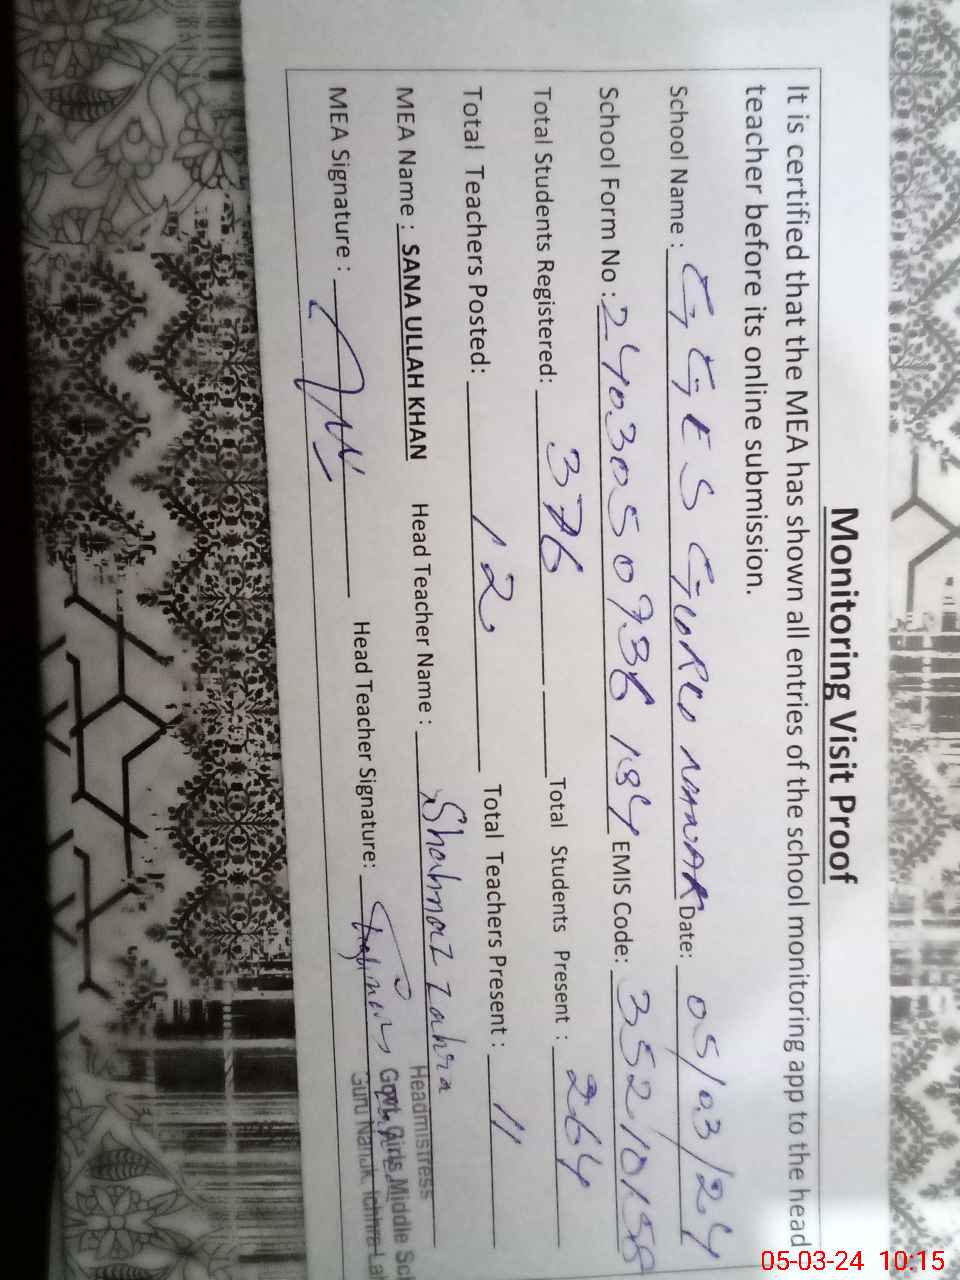 Monitoring Visit Proof
It is certified that the MEA has shown all entries of the school monitoring app to the head
teacher before its online submission.
School Name : GGES GURU NANAK Date: 05/03/24
School Form No : 2403050938184 EMIS Code: 35210158
Total Students Registered: 376 Total Students Present : 264
Total Teachers Posted: 12 Total Teachers Present : 11
MEA Name : SANA ULLAH KHAN Head Teacher Name : Shahnaz Zahra
MEA Signature : Head Teacher Signature:
Headmistress
Govt. Girls Middle Sch
Guru Nanak, Ichhra La
05-03-24 10:15